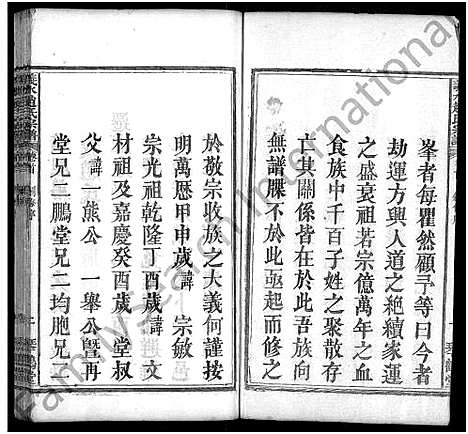 峯者每瞿然顧予等曰今者
劫運方興人道之絶續家運
之盛衰祖若宗億萬年之血
食族中千百子姓之聚散存
亡其關係皆在於此吾族向
無譜牒不於此亟起而修之
於敬宗收族之大義何謹按
明萬厯甲申歲諱 宗敏
宗光祖乾隆丁酉歲諱 文
材祖及嘉慶癸酉歲 堂叔
父諱一熊公 一舉公曁再
堂兄二鵬堂兄二均胞兄二
FamilySearch International